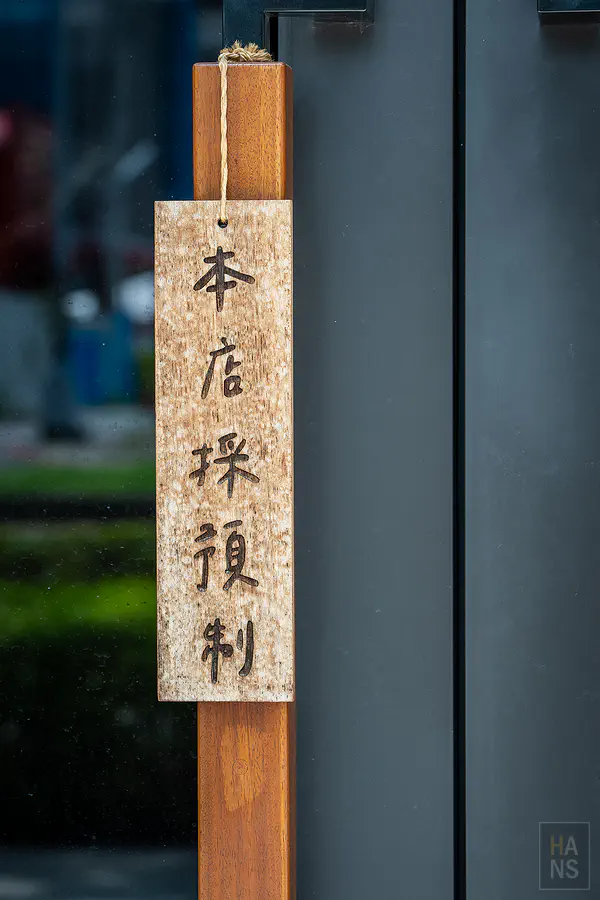 本店採預制
HA
NS